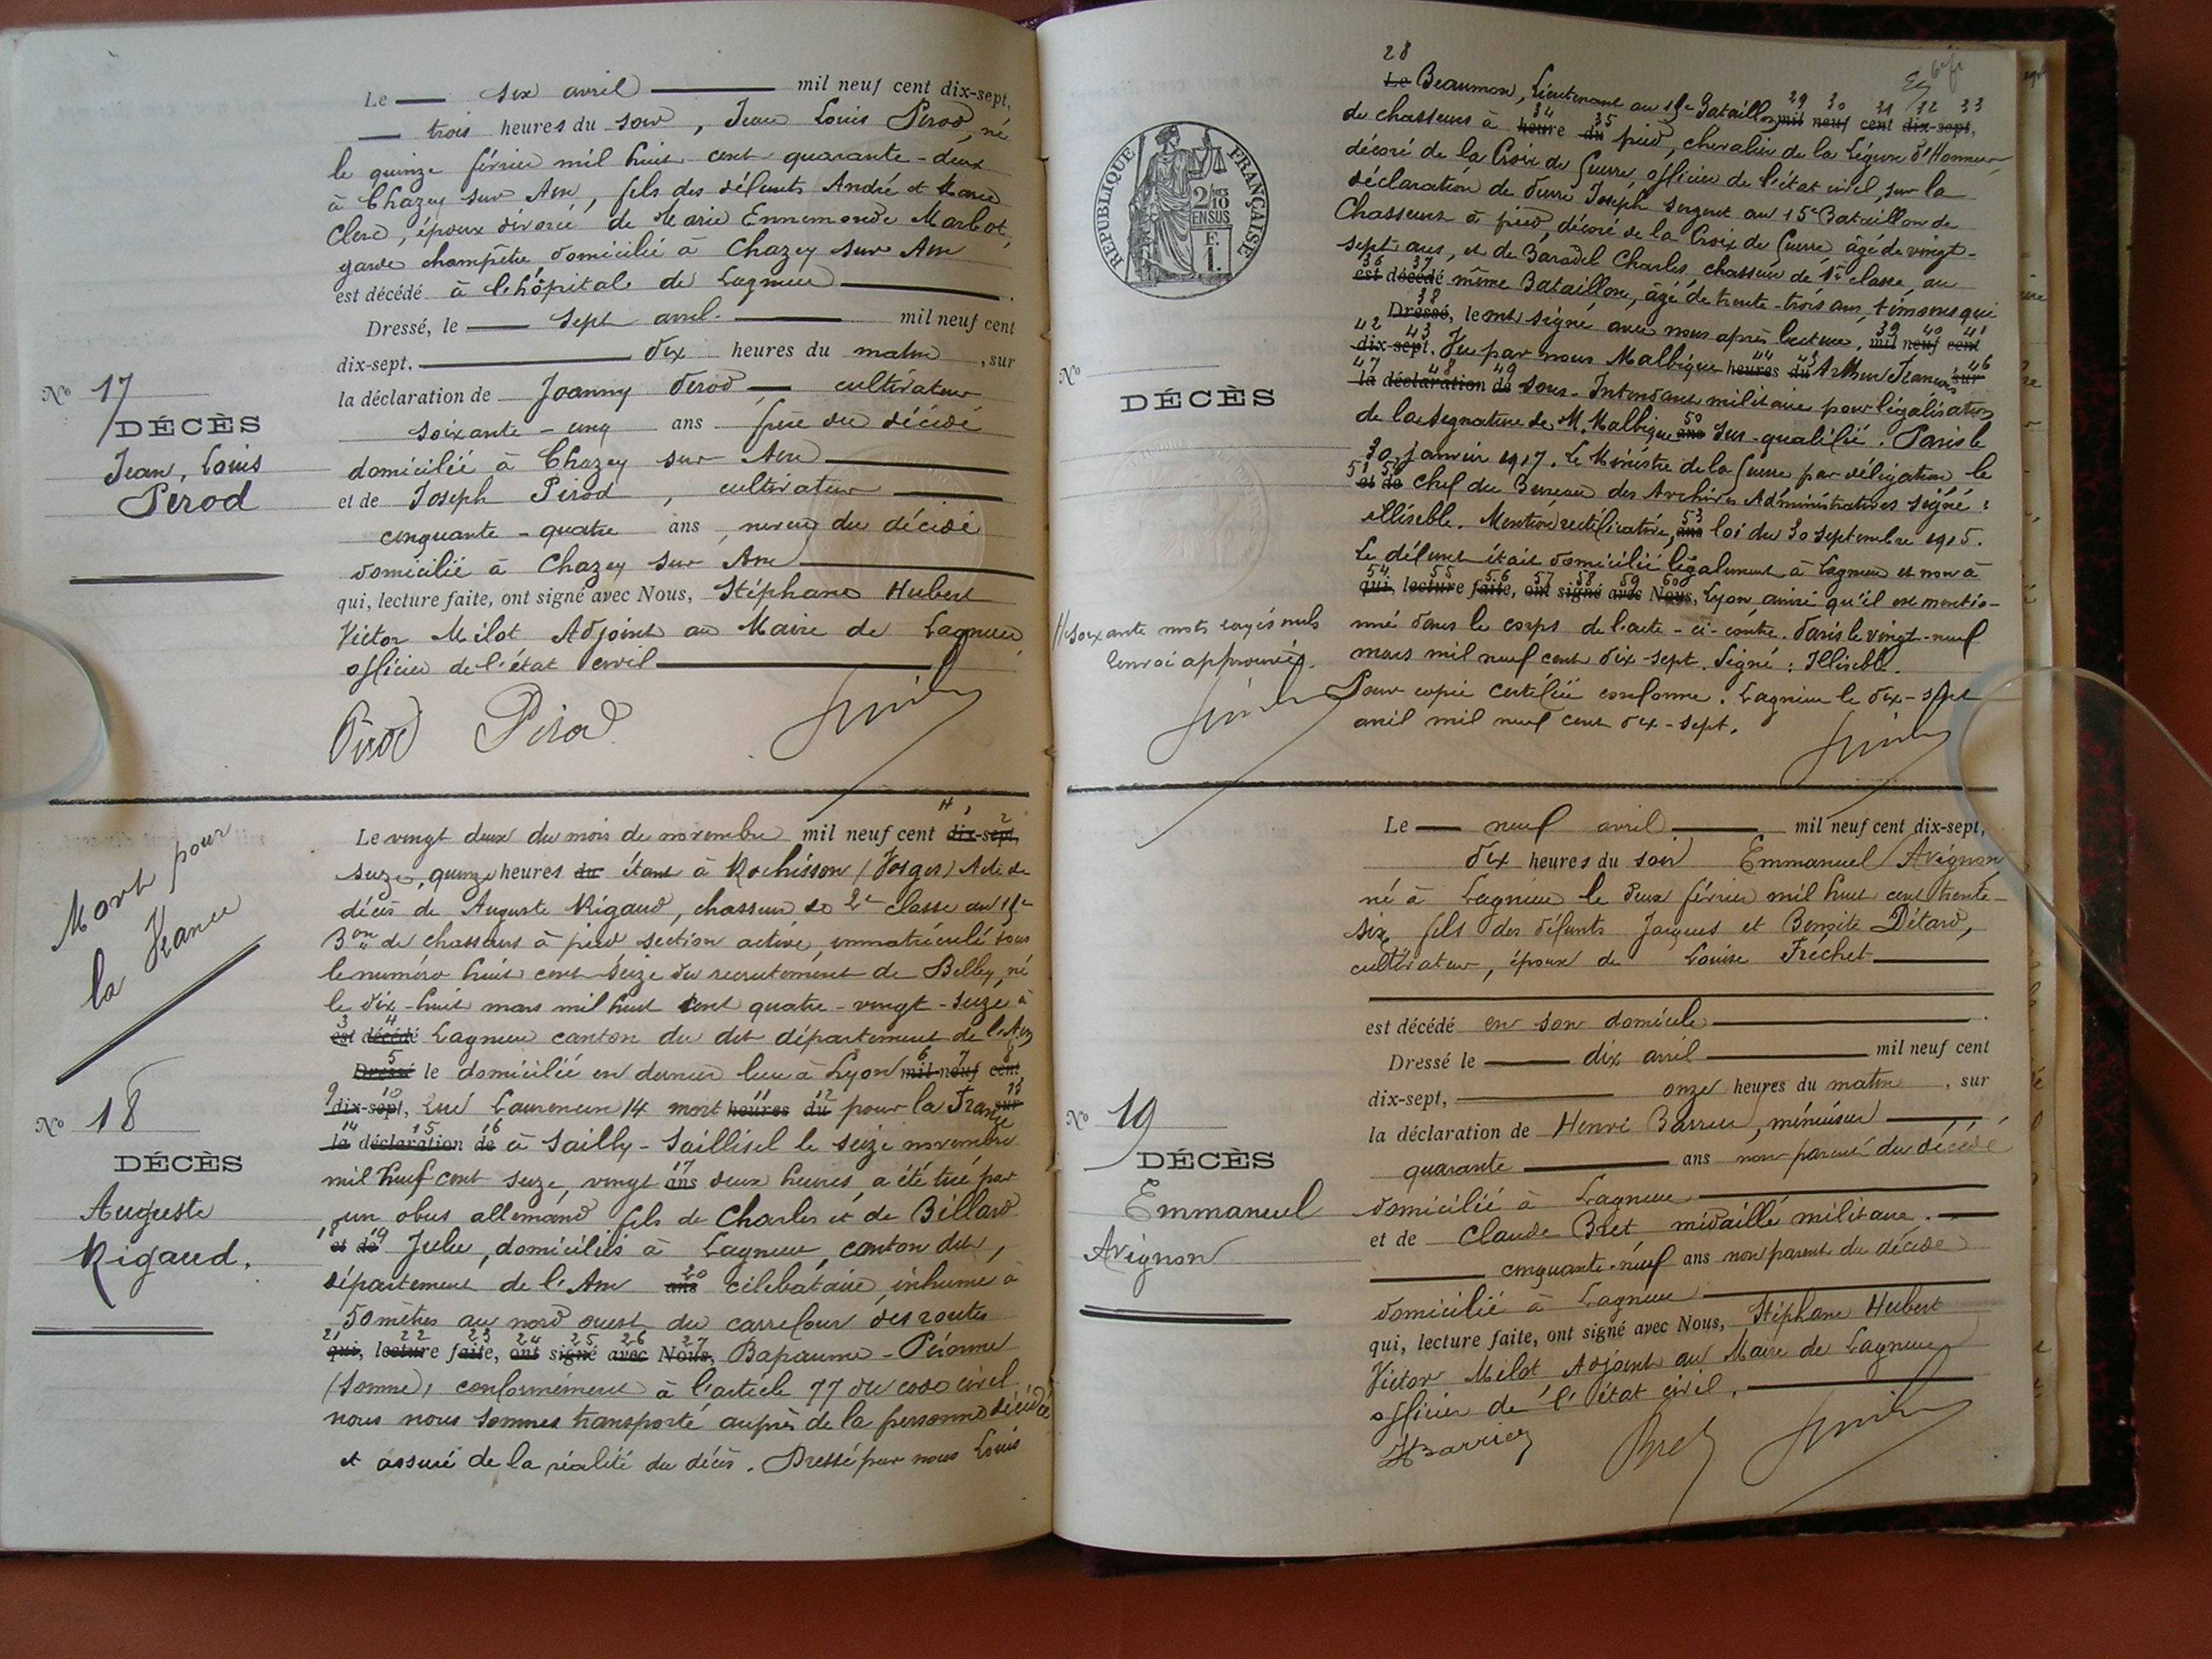 Le — six avril — mil neuf cent dix-sept,
— trois heures du soir, Jean Louis Perod, né
le quinze février mil huit cent quarante-deux
à Chazey sur Ain, fils des défunts André et Marie
Clerc, époux divorcé de Marie Ennemonde Marbot,
garde champêtre domicilié à Chazey sur Ain
est décédé à l'hôpital de Lagnieu
Dressé, le — sept avril — mil neuf cent
dix-sept, — dix heures du matin, sur
la déclaration de Joanny Perod — cultivateur
soixante-cinq ans frère du décédé
domicilié à Chazey sur Ain
et de Joseph Pérod, cultivateur
cinquante-quatre ans, neveu du décédé
domicilié à Chazey sur Ain
qui, lecture faite, ont signé avec Nous, Stéphane Hubert
Victor Milot Adjoint au Maire de Lagnieu
officier de l'état civil
Perod Perod
No 17
DÉCÈS
Jean, Louis
Perod
Mort pour
la France
No 18
DÉCÈS
Auguste
Rigaud.
Le vingt deux du mois de novembre mil neuf cent dix-sept,
seize, quinze heures du étant à Rochisson (Vosges) Acte de
décès de Auguste Rigaud, chasseur de 2e classe au 15e
Bon de chasseurs à pied section active, immatriculé sous
le numéro huit cent seize du recrutement de Belley, né
le dix-huit mars mil huit cent quatre-vingt-seize à
est décédé Lagnieu canton du dit département de l'Ain
Dressé le domicilié en dernier lieu à Lyon mil neuf cent
dix-sept, rue Laurencin 14 mort heures du pour la France sur
la déclaration de à Sailly-Saillisel le seize novembre
mil neuf cent seize, vingt ans deux heures, a été tué par
un obus allemand fils de Charles et de Billard
et de Julie, domiciliés à Lagnieu, canton dit,
département de l'Ain ans célibataire, inhumé à
50 mètres au nord ouest du carrefour des routes
qui, lecture faite, ont signé avec Nous, Bapaume-Péronne
(Somme), conformément à l'article 77 du code civil
nous nous sommes transporté auprès de la personne décédée
et assuré de la réalité du décès. Dressé par nous Louis
28
Le Beaumon, Lieutenant au 15e Bataillon mil neuf cent dix-sept,
de chasseurs à heure du pied, chevalier de la Légion d'Honneur
décoré de la Croix de Guerre officier de l'état civil, sur la
déclaration de Joseph Sergent au 15e Bataillon de
Chasseurs à pied, décoré de la Croix de Guerre âgé de vingt-
sept ans, et de Baradel Charles, chasseur de 1re classe, au
est décédé même Bataillon, âgé de trente-trois ans, témoins qui
Dressé, le ont signé avec nous après lecture, mil neuf cent
dix-sept. Vu par nous Malbique heures du Arthur François sur
la déclaration de Sous-Intendant militaire pour légalisation
de la signature de M. Malbique ans sus-qualifié. Paris le
30 janvier 1917. Le Ministre de la Guerre par délégation le
et de Chef du Bureau des Archives Administratives signé:
illisible. Mention rectificative, ans loi du 30 septembre 1915.
Le défunt était domicilié légalement à Lagnieu et non à
qui, lecture faite, ont signé avec Nous, Lyon ainsi qu'il est mentio-
nné dans le corps de l'acte-ci-contre. Paris le vingt-neuf
mars mil neuf cent dix-sept. Signé: Illisible.
Pour copie certifiée conforme. Lagnieu le dix-sept
avril mil neuf cent dix-sept.
REPUBLIQUE FRANÇAISE
2/10
EN SUS
No
DÉCÈS
Soixante mots rayés nuls
renvoi approuvé.
No 19
DÉCÈS
Emmanuel
Avignon
Le — neuf avril — mil neuf cent dix-sept,
dix heures du soir Emmanuel Avignon
né à Lagnieu le deux février mil huit cent trente-
six, fils des défunts Jacques et Benoite Détard,
cultivateur, époux de Louise Fréchet
est décédé en son domicile
Dressé le — dix avril — mil neuf cent
dix-sept, — onze heures du matin, sur
la déclaration de Henri Barrier, menuisier
quarante — ans non parent du décédé
domicilié à Lagnieu
et de Claude Bret médaillé militaire.
cinquante-neuf ans non parent du décédé
domicilié à Lagnieu
qui, lecture faite, ont signé avec Nous, Stéphane Hubert
Victor Milot Adjoint au Maire de Lagnieu
officier de l'état civil.
HBarrier Bret